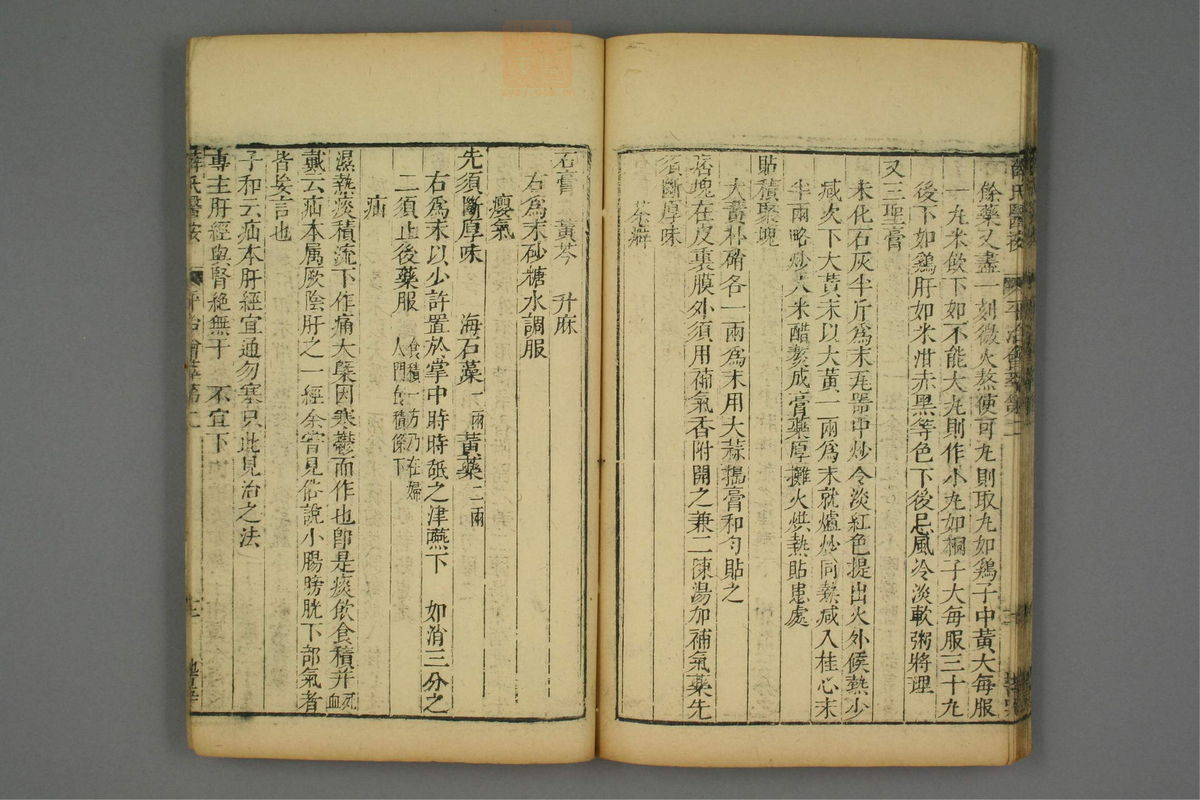 餘藥又盡一刻微火熬使可丸則取丸如鷄子中黃大每服
一丸米飲下如不能大丸則作小丸如桐子大每服三十丸
後下如鷄肝如米泔赤黑等色下後忌風冷淡軟粥將理
又三聖膏
未化石灰半斤爲末瓦器中炒令淡紅色提出火外候熱少
减次下大黃末以大黃一兩爲末就爐炒同熱减入桂心末
半兩略炒入米醋熬成膏藥厚攤火烘熱貼患處
貼積聚塊
大黃朴硝各一兩爲末用大蒜搗膏和匀貼之
痞塊在皮裏膜外須用補氣香附開之兼二陳湯加補氣藥先
須斷厚味
茶癖
石膏　黃芩　升麻
右爲末砂糖水調服
癭氣
先須斷厚味　海石藻一兩黃藥二兩
右爲末以少許置於掌中時時舐之津嚥下　如消三分之
二須止後藥服食積一方乃在婦人門食積條下
疝
濕熱痰積流下作痛大槩因寒鬱而作也卽是痰飲食積并死血
戴云疝本属厥陰肝之一經余甞見俗說小腸膀胱下部氣者
皆妄言也
子和云疝本肝經宜通勿塞只此見治之法
專主肝經與腎絕無干　不宜下
薛氏醫按　平治會萃第二